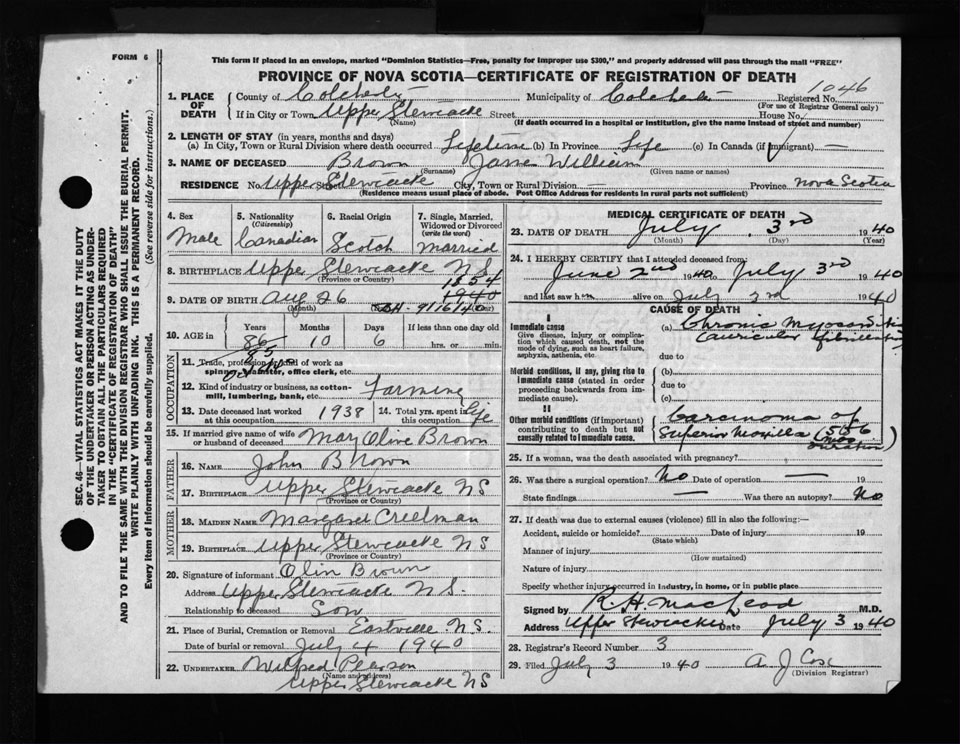 FORM 6
This form if placed in an envelope, marked "Dominion Statistics—Free, penalty for improper use $300," and properly addressed will pass through the mail "FREE"
PROVINCE OF NOVA SCOTIA—CERTIFICATE OF REGISTRATION OF DEATH
1046
1. PLACE OF DEATH County of Colchester Municipality of Colchester Registered No.
(For use of Registrar General only)
If in City or Town Upper Stewiacke Street House No.
(Name) (If death occurred in a hospital or institution, give the name instead of street and number)
2. LENGTH OF STAY (in years, months and days)
(a) In City, Town or Rural Division where death occurred Lifetime (b) In Province Life (c) In Canada (if immigrant) —
3. NAME OF DECEASED Brown James William
(Surname) (Given name or names)
RESIDENCE No. Upper Stewiacke Street City, Town or Rural Division — Province Nova Scotia
(Residence means usual place of abode. Post Office Address for residents in rural parts not sufficient)
4. Sex Male
5. Nationality (Citizenship) Canadian
6. Racial Origin Scotch
7. Single, Married, Widowed or Divorced (write the word) married
8. BIRTHPLACE Upper Stewiacke NS
(Province or Country)
1854
9. DATE OF BIRTH Aug 26 1940
(Month) 9/16/40
10. AGE in Years Months Days If less than one day old
86 10 6 hrs. or min.
85
OCCUPATION
11. Trade, profession or kind of work as spinner, teamster, office clerk, etc.
12. Kind of industry or business, as cotton-mill, lumbering, bank, etc. Farming
13. Date deceased last worked at this occupation 1938 14. Total yrs. spent in this occupation Life
15. If married give name of wife or husband of deceased Mary Olive Brown
FATHER
16. NAME John Brown
17. BIRTHPLACE Upper Stewiacke NS
(Province or Country)
MOTHER
18. MAIDEN NAME Margaret Creelman
19. BIRTHPLACE Upper Stewiacke NS
(Province or Country)
20. Signature of informant Olin Brown
Address Upper Stewiacke NS.
Relationship to deceased Son
21. Place of Burial, Cremation or Removal Eastville N.S.
Date of burial or removal July 4 1940
22. UNDERTAKER Wilfred Pearson
(Name and address)
Upper Stewiacke NS
MEDICAL CERTIFICATE OF DEATH
23. DATE OF DEATH July 3rd 1940
(Month) (Day) (Year)
24. I HEREBY CERTIFY that I attended deceased from:
June 2nd 1940 to July 3rd 1940
and last saw him alive on July 2nd 1940
CAUSE OF DEATH
I
Immediate cause
Give disease, injury or complication which caused death, not the mode of dying, such as heart failure, asphyxia, asthenia, etc.
(a) Chronic Myocarditis
(auricular fibrillation)
due to
Morbid conditions, if any, giving rise to immediate cause (stated in order proceeding backwards from immediate cause).
(b)
due to
(c)
II
Other morbid conditions (if important) contributing to death but not causally related to immediate cause.
Carcinoma of
Superior Maxilla (5 or 6 mos duration)
25. If a woman, was the death associated with pregnancy?
26. Was there a surgical operation? No Date of operation — 19
State findings — Was there an autopsy? No
27. If death was due to external causes (violence) fill in also the following:—
Accident, suicide or homicide? Date of injury 19
(State which)
Manner of injury
(How sustained)
Nature of injury
Specify whether injury occurred in industry, in home, or in public place
Signed by R. H. MacLeod M.D.
Address Upper Stewiacke Date July 3 1940
28. Registrar's Record Number 3
29. Filed July 3 1940 A J Cox
(Division Registrar)
SEC. 46—VITAL STATISTICS ACT MAKES IT THE DUTY
OF THE UNDERTAKER OR PERSON ACTING AS UNDER-
TAKER TO OBTAIN ALL THE PARTICULARS REQUIRED
IN THE "CERTIFICATE OF REGISTRATION OF DEATH"
AND TO FILE THE SAME WITH THE DIVISION REGISTRAR WHO SHALL ISSUE THE BURIAL PERMIT.
WRITE PLAINLY WITH UNFADING INK. THIS IS A PERMANENT RECORD.
Every item of information should be carefully supplied. (See reverse side for instructions.)